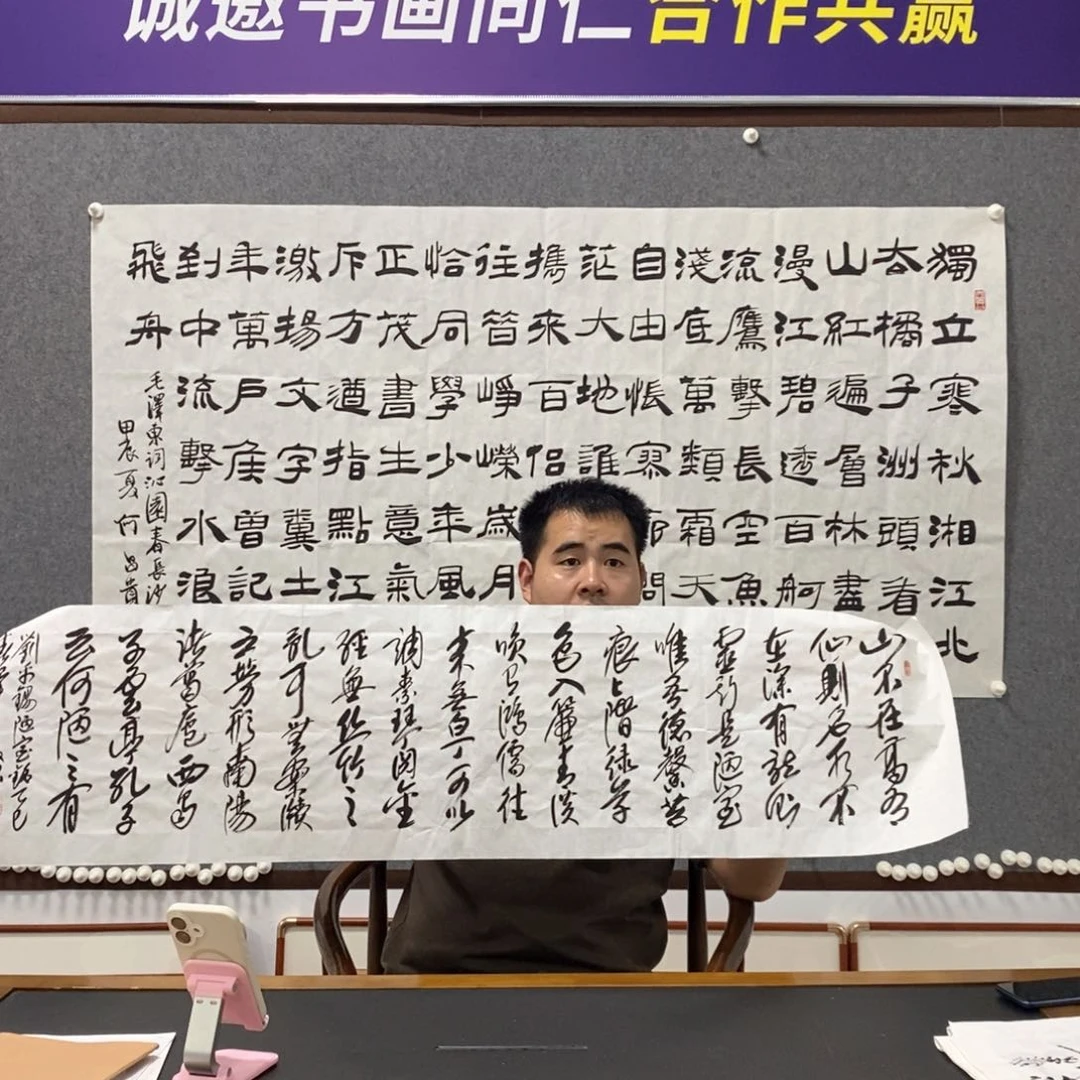 诚邀书画同仁合作共赢
獨立寒秋湘江北
去橘子洲頭看
山紅遍層林盡
漫江碧透百舸
流鷹擊長空魚
淺底萬類霜天
自由悵寥廓問
茫大地誰
攜來百侶
往昔崢嶸歲月
恰同學少年風
正茂書生意氣
斥方遒指點江
激揚文字糞土
年萬戶侯曾記
到中流擊水浪
飛舟
毛澤東詞沁園春長沙
甲辰夏何昌
山不在高有
仙則名水不
在深有龍則
靈斯是陋室
唯吾德馨苔
痕上階緑草
色入簾青談
笑有鴻儒往
來無白丁可以
調素琴閱金
經無絲竹之
亂耳無案牘
之勞形南陽
諸葛廬西蜀
子雲亭孔子
云何陋之有
劉禹錫陋室銘乙巳